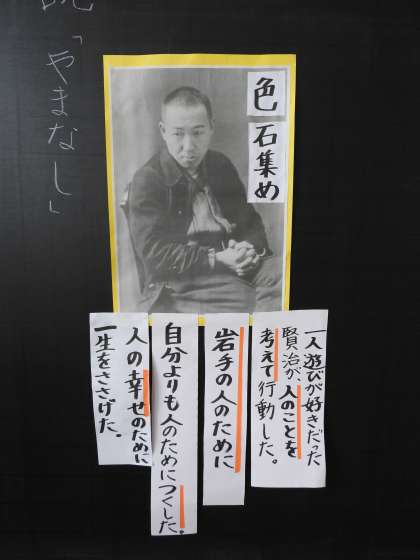 「やまなし」
色
石集め
一人遊びが好きだった
賢治が、人のことを
考えて行動した。
岩手の人のために
自分よりも人のためにつくした。
人の幸せのために
一生をささげた。